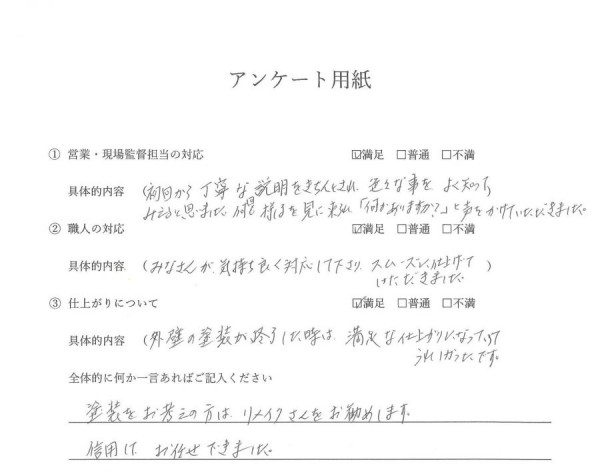 アンケート用紙
① 営業・現場監督担当の対応 ☑満足 □普通 □不満
具体的内容 (初日から丁寧な説明をきちんとされ、色々な事をよく知って
みえると思いました。何度も様子を見に来られ「何かありますか?」と声をかけていただきました。
② 職人の対応 ☑満足 □普通 □不満
具体的内容 (みなさんが、気持ち良く対応して下さり、スムーズに仕上げて
いただきました。)
③ 仕上がりについて ☑満足 □普通 □不満
具体的内容 (外壁の塗装が終了した時は、満足な仕上がりになっていて
うれしかったです。
全体的に何か一言あればご記入ください
塗装をお考えの方は、リメイクさんをお勧めします。
信用して、お任せできました。